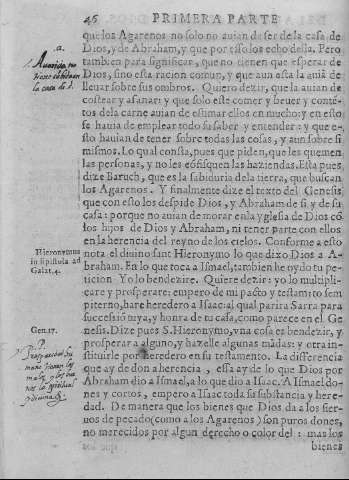 46 PRIMERA PARTE
que los Agarenos no solo no auian de ser de la casa de
Dios, y de Abraham, y que por esso los echo della. Pero
tambien para significar, que no tienen que esperar de
Dios, sino esta racion comun, y que aun esta la auiã de
lleuar sobre sus ombros. Quiero dezir, que la auian de
costear y afanar: y que solo este comer y beuer y conté-
tos dela carne auian de estimar ellos en mucho: y en esto
se hauia de emplear todo su saber y entender: y que e-
sto hauian de tener sobre todas las cosas, y aun sobre si
mismos. Lo qual consta, pues que piden, que les quemen
las personas, y no les cófisquen las haziendas. Esta pues
dize Baruch, que es la sabiduria dela tierra, que buscan
los Agarenos. Y finalmente dize el texto del Genesis,
que con esto los despide Dios, y Abraham de si y de su
casa: porque no auian de morar en la yglesia de Dios có
los hijos de Dios y Abraham, ni tener parte con ellos
en la herencia del reyno de los cielos. Conforme a esto
nota el diuino sant Hieronymo lo que dixo Dios a A-
braham. En lo que toca a Ismael, tambien he oydo tu pe-
ticion Yo lo bendezire. Quiere dezir: yo lo multipli-
care y prosperare: empero de mi pacto y testamẽto sem
piterno, hare heredero a Isaac, al qual parira Sarra para
succession tuya, y honra de tu casa, como parece en el Ge
nesis. Dize pues S. Hieronymo, vna cosa es bendezir, y
prosperar a alguno, y hazelle algunas mãdas: y otra in-
stituirle por heredero en su testamento. La differencia
que ay de don a herencia, essa ay de lo que Dios por
Abraham dio a Ismael, a lo que dio a Isaac. A Ismael do-
nes y cortos, empero a Isaac toda su substancia y hereda-
dad. De manera que los bienes que Dios da a los sier-
uos de pecado (como a los Agarenos) son puros dones,
no merecidos por algun derecho o color del: mas los
bienes
a.
la casa de
Hieronymus
in epistola ad
Galat. 4.
Gen. 17.